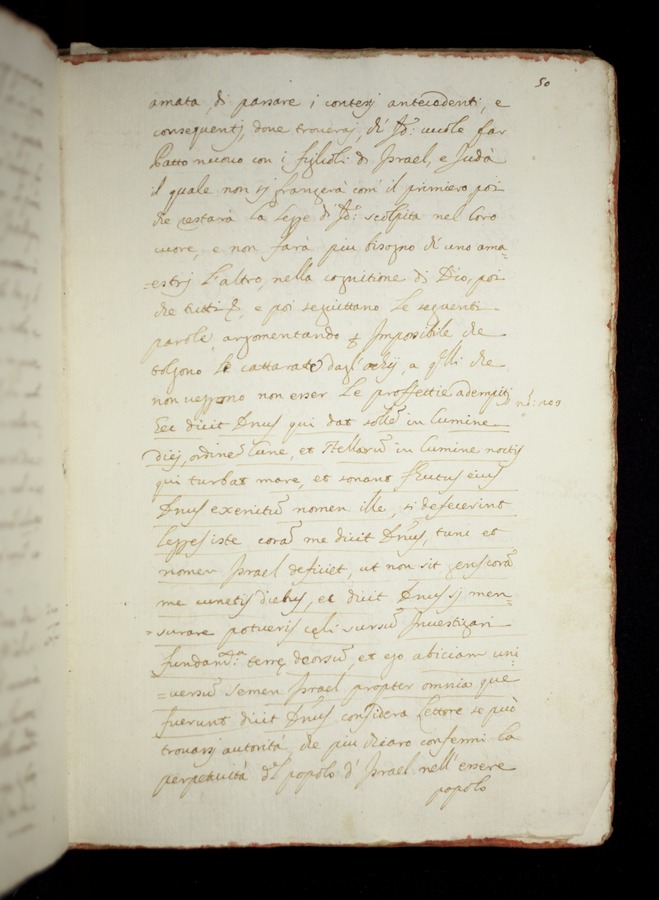 50
amata, di passare i contesti antecedenti, e
consequentj, doue trouerai, ch' Jd: vuole far
Patto nuouo con i figlioli di Jsrael, e Judà
il quale non si frangerà com' il primiero poi
che restarà la legge di Jd: scolpita nel loro
cuore, e non farà piu bisogno ch' uno ama=
=estrj l'altro, nella cognitione di Dio, poi
che tutti &, e poi seguittano le seguenti
parole, argomentando Impossibile che
tolgono le cattarate dagl' ochij, a q̃lli che
non veggono non esser le proffettie adempite
Hec dicit Dñus qui dat sollẽ in lumine
diej, ordinẽ lune, et stellarũ in lumine noctis
qui turbat mare, et sonant fluctus eius
Dñus exercituũ nomen ille, si defecerint
leggesiste corã me dicit Dñus, tunc et
nomen Jsrael deficiet, ut non sit gens corã
me cunctis diebus, et dicit Dñus si men=
=surare potueris cęli sursũ Inuestigari
fundam.ta terrę deorsũ, et ego abiciam uni
=uersũ semen Jsrael propter omnia que
fuerunt dicit Dñus considera lettore se può
trouarsj autorità, che piu chiaro confermi la
perpetuità del popolo d' Jsrael nell' essere
popolo